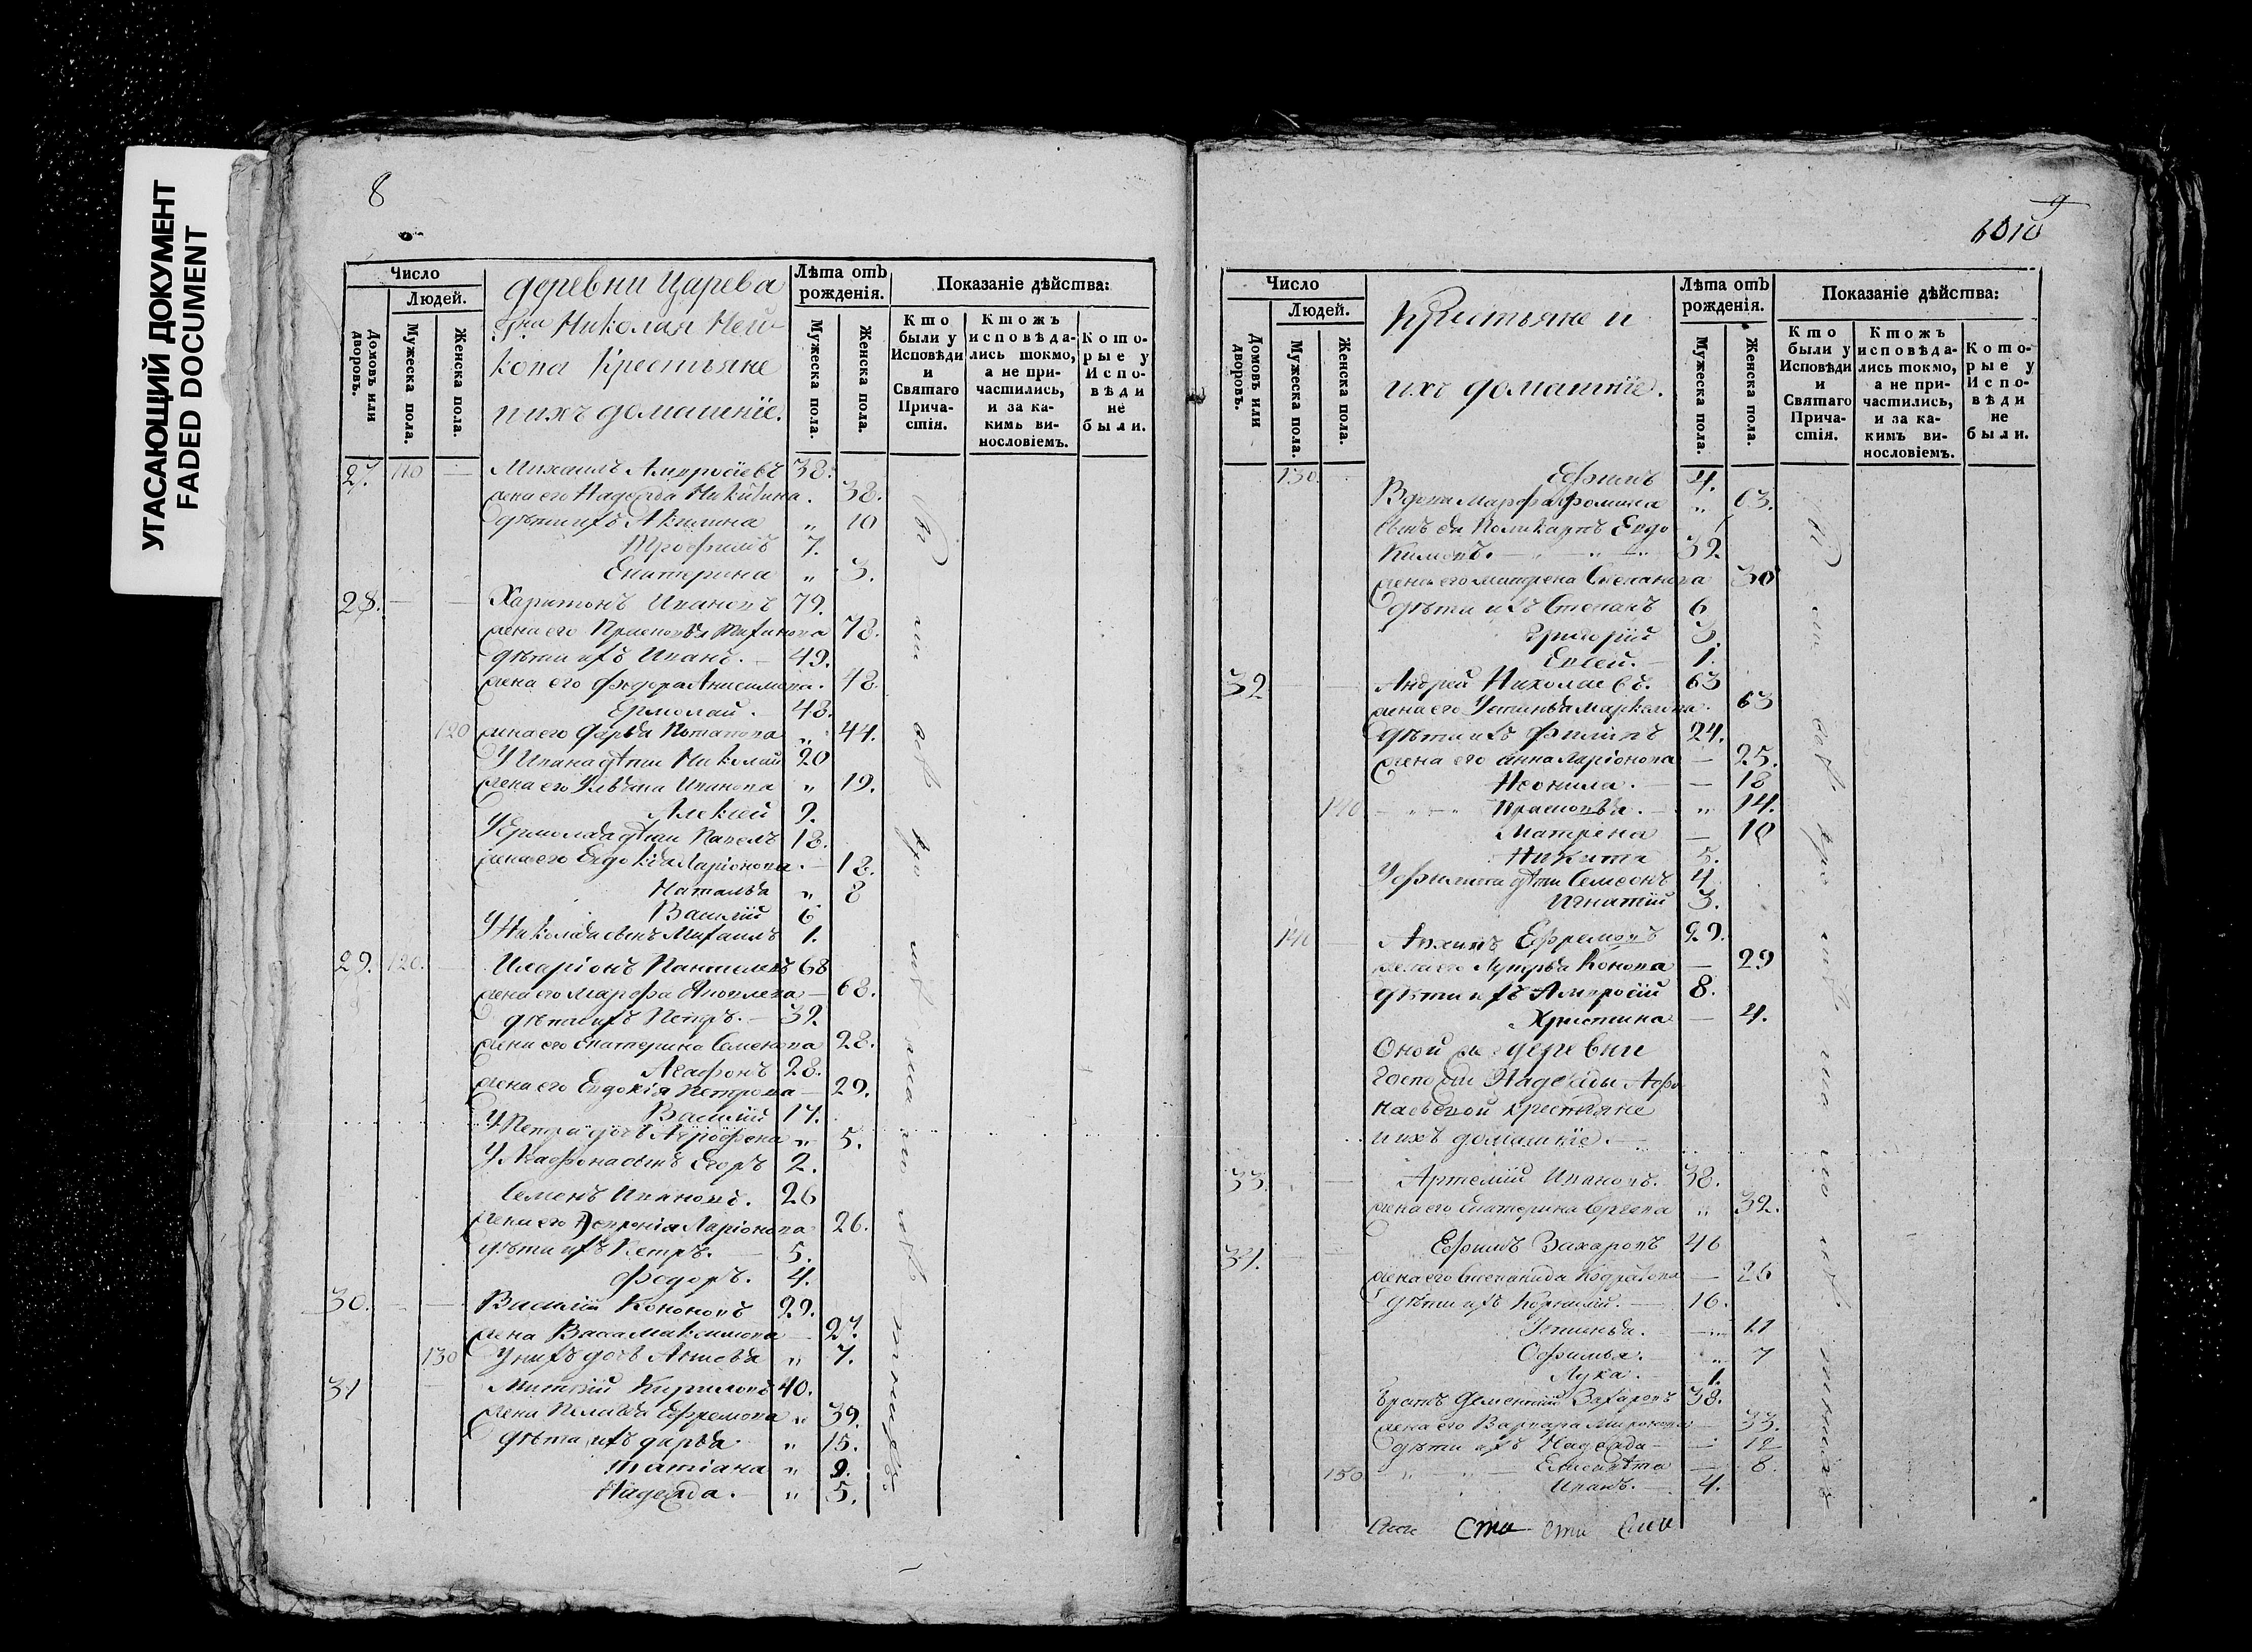 УГАСАЮЩИЙ ДОКУМЕНТ
FADED DOCUMENT
8
Число
Людей.
Домовъ или дворовъ.
Мужеска пола.
Женска пола.
деревни Царева
Гна Николая Ней-
кова Крестьяне
и ихъ домашніе.
Лѣта отъ рожденія.
Мужеска пола.
Женска пола.
Показаніе дѣйства:
Кто были у Исповѣди и Святаго Прича-стія.
Ктожъ исповѣда-лись токмо, а не при-частились, и за ка-кимъ ви-нословіемъ.
Кото-рые у Испо-вѣди не были.
27. 110 — Михаилъ Амвросіевъ 38.
жена его Надежда Никитина. 38.
дѣти ихъ Акилина „ 10
Трофимъ 7.
Екатерина „ 3.
28. — — Харитонъ Ивановъ 79.
жена его Прасковья 78.
дѣти ихъ Иванъ. — 49.
жена его Федора Анисимова. 48.
Ермолай. — 48.
120 жена его Дарья Потапова „ 44.
У Ивана дѣти Николай 20
жена его Ульяна Иванова „ 19.
Алексѣй 9.
У Ермолая дѣти Павелъ 18.
жена его Евдокія Ларіонова. — 18.
Наталья „ 8
Василій 6
У Николая сынъ Михаилъ 1.
29. 120. — Иларіонъ 68
жена его Марфа — 68.
дѣти ихъ Петръ. — 39.
жена его Екатерина Семенова 28.
Агафонъ 28.
жена его Евдокія Петрова — 29.
Василій 17.
У Петра дочь „ 5.
У Агафона сынъ Егоръ 2.
Семенъ Ивановъ. 26
жена его Ларіонова 26.
дѣти ихъ Петръ. — 5.
Федоръ. 4.
30. — — Василій Кононовъ 29.
жена Васса Максимова 27.
130 У нихъ дочь „ 7.
31 — Кириловъ 40.
жена Пелагѣя Ефремова „ 39.
дѣти ихъ Дарья „ 15.
Татіана „ 9.
Надежда. — „ 5.
9
1010
Число
Людей.
Домовъ или дворовъ.
Мужеска пола.
Женска пола.
Крестьяне и
ихъ домашніе.
Лѣта отъ рожденія.
Мужеска пола.
Женска пола.
Показаніе дѣйства:
Кто были у Исповѣди и Святаго Прича-стія.
Ктожъ исповѣда-лись токмо, а не при-частились, и за ка-кимъ ви-нословіемъ.
Кото-рые у Испо-вѣди не были.
130 Ефимъ 4.
Вдова Марфа Фомина „ 63.
сынъ ея Поликарпъ Евдо
кимовъ. 32
жена его Матрена Степанова 30
дѣти ихъ Степанъ 6
Григорій 3.
Евсей. — 1.
32 Андрей Николаевъ. 63
жена его Устинья Маркелова. 63
дѣти ихъ Филипъ 24.
жена его Анна Ларіонова — 25.
Неонила. — — 18
140 Прасковья. — „ 14.
Матрена — 10
Никита 5.
У Филипа дѣти Семеонъ 4
Игнатій 3.
140 Ефремовъ 29.
жена его Конова — 29
дѣти ихъ Амвросій 8.
Христина — 4.
Оной же деревни
Госпожи Надежды Афо
насьевой крестьяне
и ихъ домашніе. —
33. — Артемій Ивановъ. 38.
жена его Екатерина Сергева „ 32.
34. Ефимъ Захаровъ 46
жена его Степанида — 26
дѣти ихъ Корнилій. — 16.
Устинья. 11
Офимья. „ 7
Лука. — 1.
братъ Дементій Захаровъ 38.
жена его Варвара Миронова — 33.
дѣти ихъ Надежда — — 12
150 Елисавета — 8.
Иванъ. — 4.